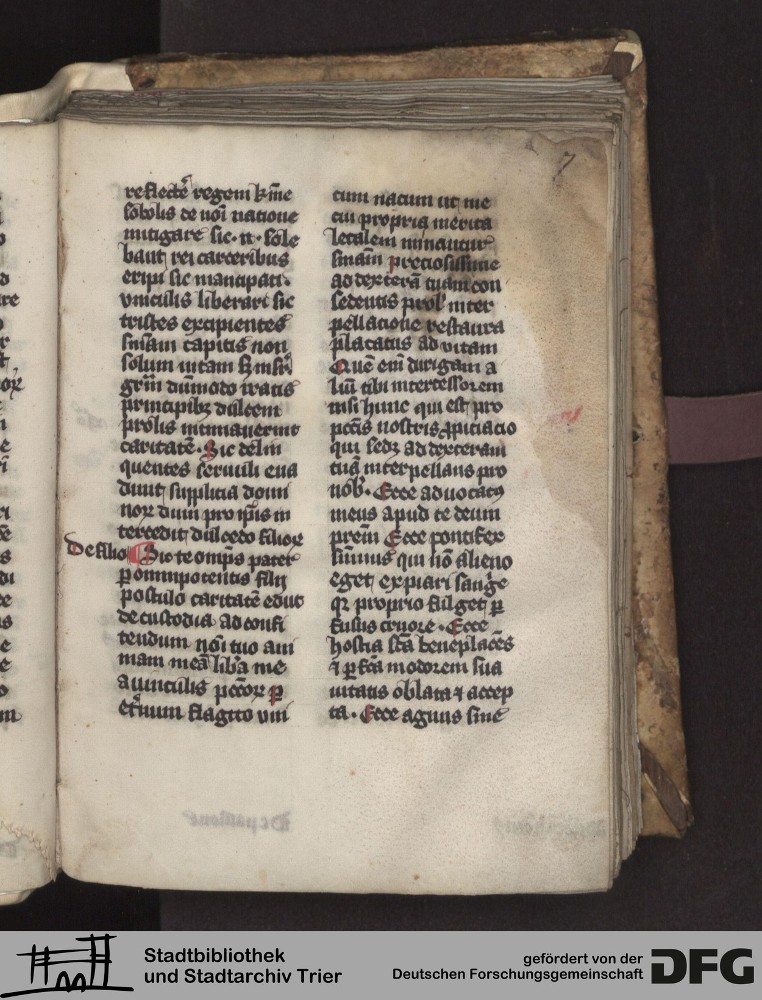 7
reflecte᷒ regem k̄ıne
sobolis de uoı̄ natione
mitigare sic · n · sole
bant rei carceribus
eripi sic mancipati
vinculis liberari sic
tristes excipientes
sn̄iam capitis non
solum uitam
grām dūmodo iratis
principibꝫ dulcem
prolis intimauerint
caritatē · Sic delin
quentes seruuli eua
dunt supplicia domi
noꝝ dum pro ip̄is in
tercedit dulcedo filioꝝ
De filio Sic te omp̄s pater
ꝑ omnipotentis filij
postulo caritatē educ
de custodia ad confi
tendum noı̄ tuo ani
mam meā lib̓a me
a uinculis pccōꝝ ꝑ
et̓num flagito vni
cum natum ut me
cui propria merita
letalem minantur
sn̄iam preciosissime
ad dexterā tuam con
sedentis prol̓ inter
pellatione restaura
placatus ad vitam
Quē eni dirigam a
liū tibi intercessorem
nisi hunc qui est pro
pccīs nostris ꝓpiciacio
qui sedꝫ ad dexteram
tuā interpellans pro
nob̓ · Ecce aduocatꝰ
meus apud te deum
prēm Ecce pontifex
sūmus qui nō alieno
eget expiari sang̓e
qꝛ proprio fulget ꝑ
fusus cruore · Ecce
hostia scā beneplacēs
⁊ ꝑfcā in odorem sua
uitatis oblata ⁊ accep
ta · Ecce agnus sine
Stadtbibliothek
und Stadtarchiv Trier
gefördert von der
Deutschen Forschungsgemeinschaft
DFG